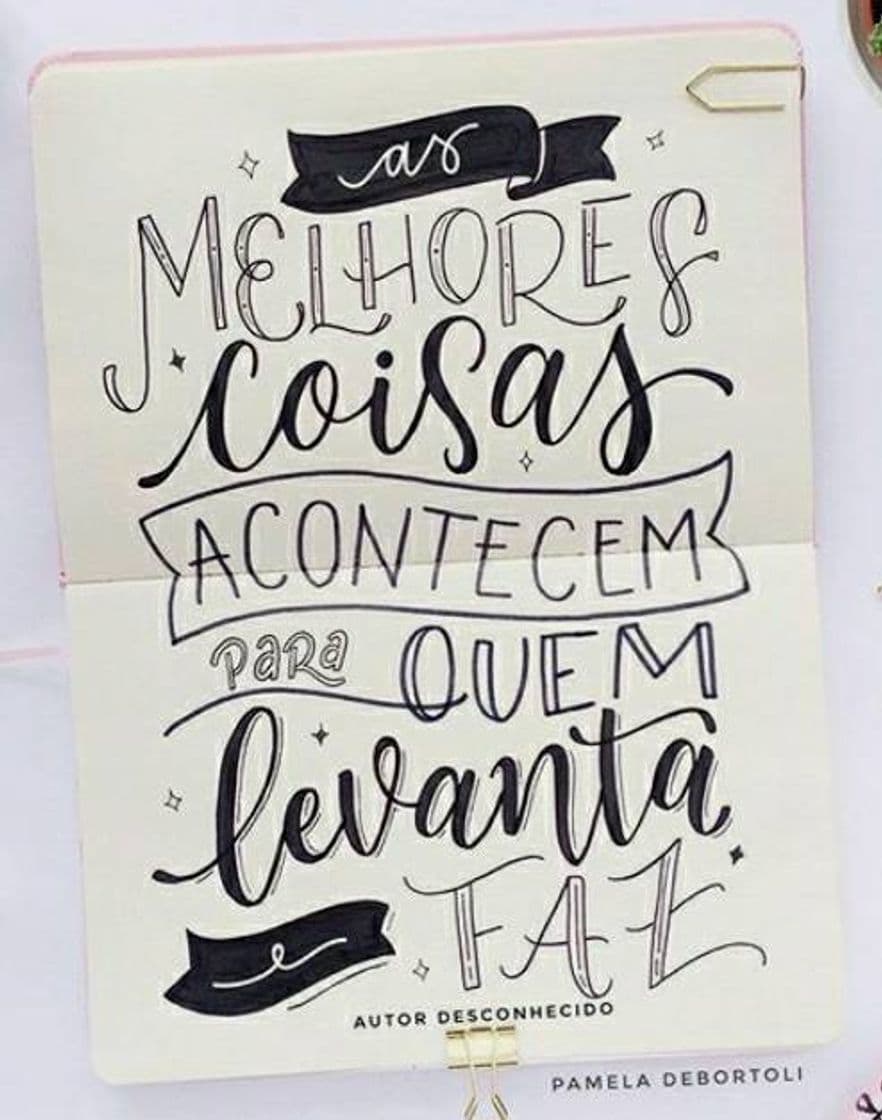 as
MELHORES
coisas
ACONTECEM
para QUEM
levanta
e FAZ
AUTOR DESCONHECIDO
PAMELA DEBORTOLI